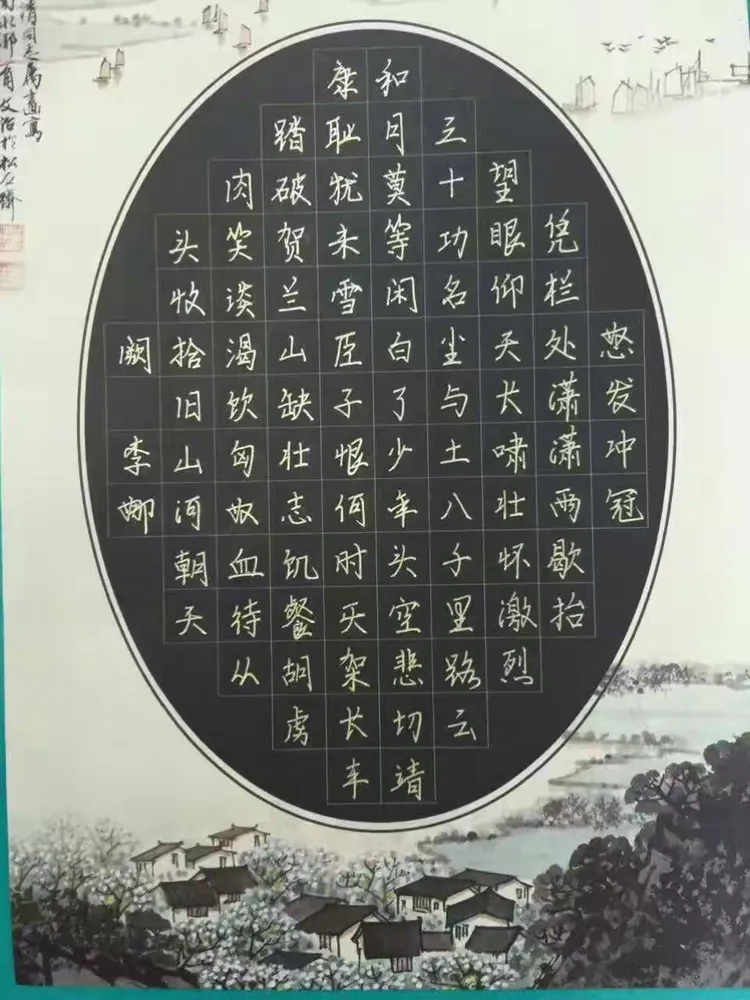 怒发冲冠
凭栏处潇潇雨歇抬
望眼仰天长啸壮怀激烈
三十功名尘与土八千里路云
和月莫等闲白了少年头空悲切靖
康耻犹未雪臣子恨何时灭架长车
踏破贺兰山缺壮志饥餐胡虏
肉笑谈渴饮匈奴血待从
头收拾旧山河朝天
阙 李娜
清同志属